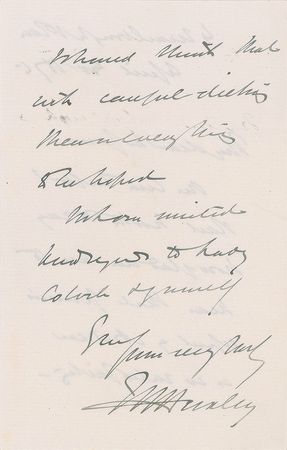 I should think that
with careful dieting
there is everything
to be hoped
With our united
kind regards to Lady
& yourself
Ever
yours very truly
T H Huxley